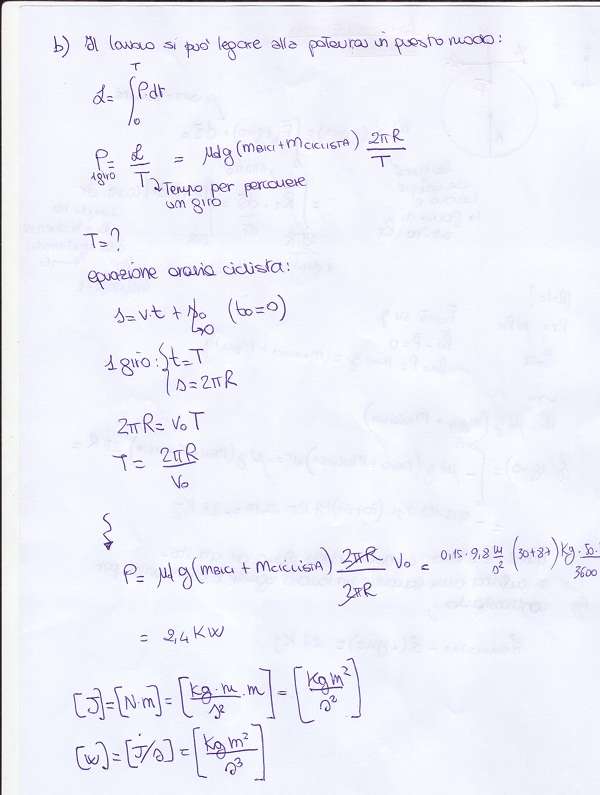 b) Il lavoro si può legare alla potenza in questo modo:
L = ∫₀ᵀ P dt
P 1giro = L/T = μd g (mBICI + mCICLISTA) 2πR/T
↳ Tempo per percorrere
un giro
T = ?
equazione oraria ciclista:
s = vt + s₀ (t₀=0)
↳ 0
1 giro: { t = T
s = 2πR
2πR = v₀ T
T = 2πR/v₀
P = μd g (mBICI + mCICLISTA) 2πR/2πR v₀ = 0,15 · 9,8 m/s² (30+87) Kg · 50.
3600
= 2,4 KW
[J] = [N·m] = [kg·m/s² · m] = [Kg m²/s²]
[W] = [J/s] = [Kg m²/s³]